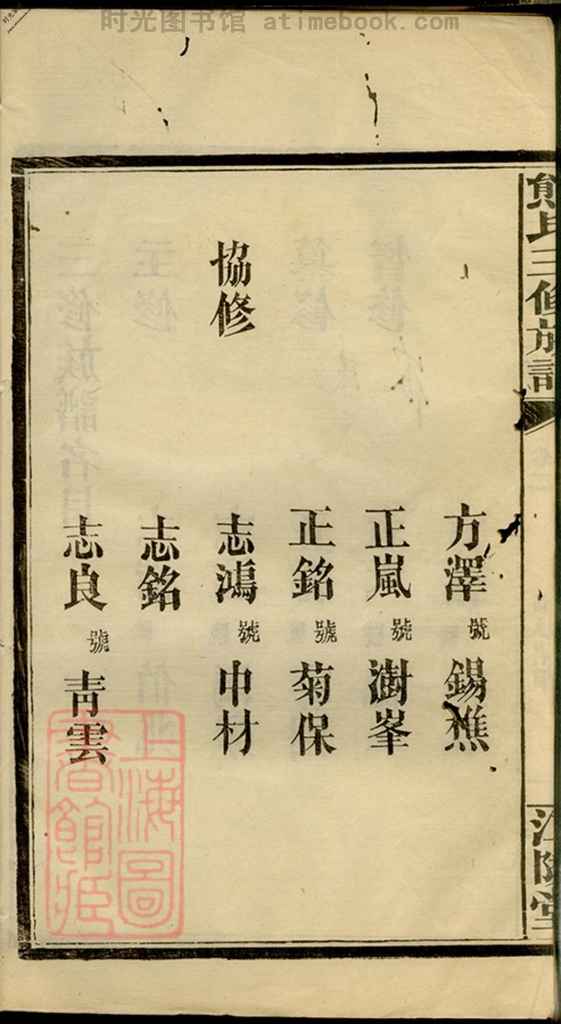 时光图书馆 atimebook.com
熊氏三修族譜
江陵堂
方澤 號 錫樵
正嵐 號 澍峯
協修
正銘 號 菊保
志鴻 號 中材
志銘
志良 號 青雲
上海圖書館藏